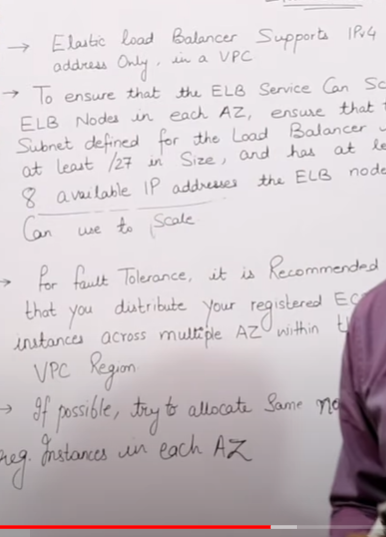 → Elastic load Balancer Supports IPv4
address Only, in a VPC
→ To ensure that the ELB Service Can Sc
ELB Nodes in each AZ, ensure that t
Subnet defined for the Load Balancer
at least /27 in Size, and has at le
8 available IP addresses the ELB node
Can use to Scale
→ for fault Tolerance, it is Recommended
that you distribute your registered EC
instances across multiple AZ within t
VPC Region
→ If possible, try to allocate Same no
reg. Instances in each AZ